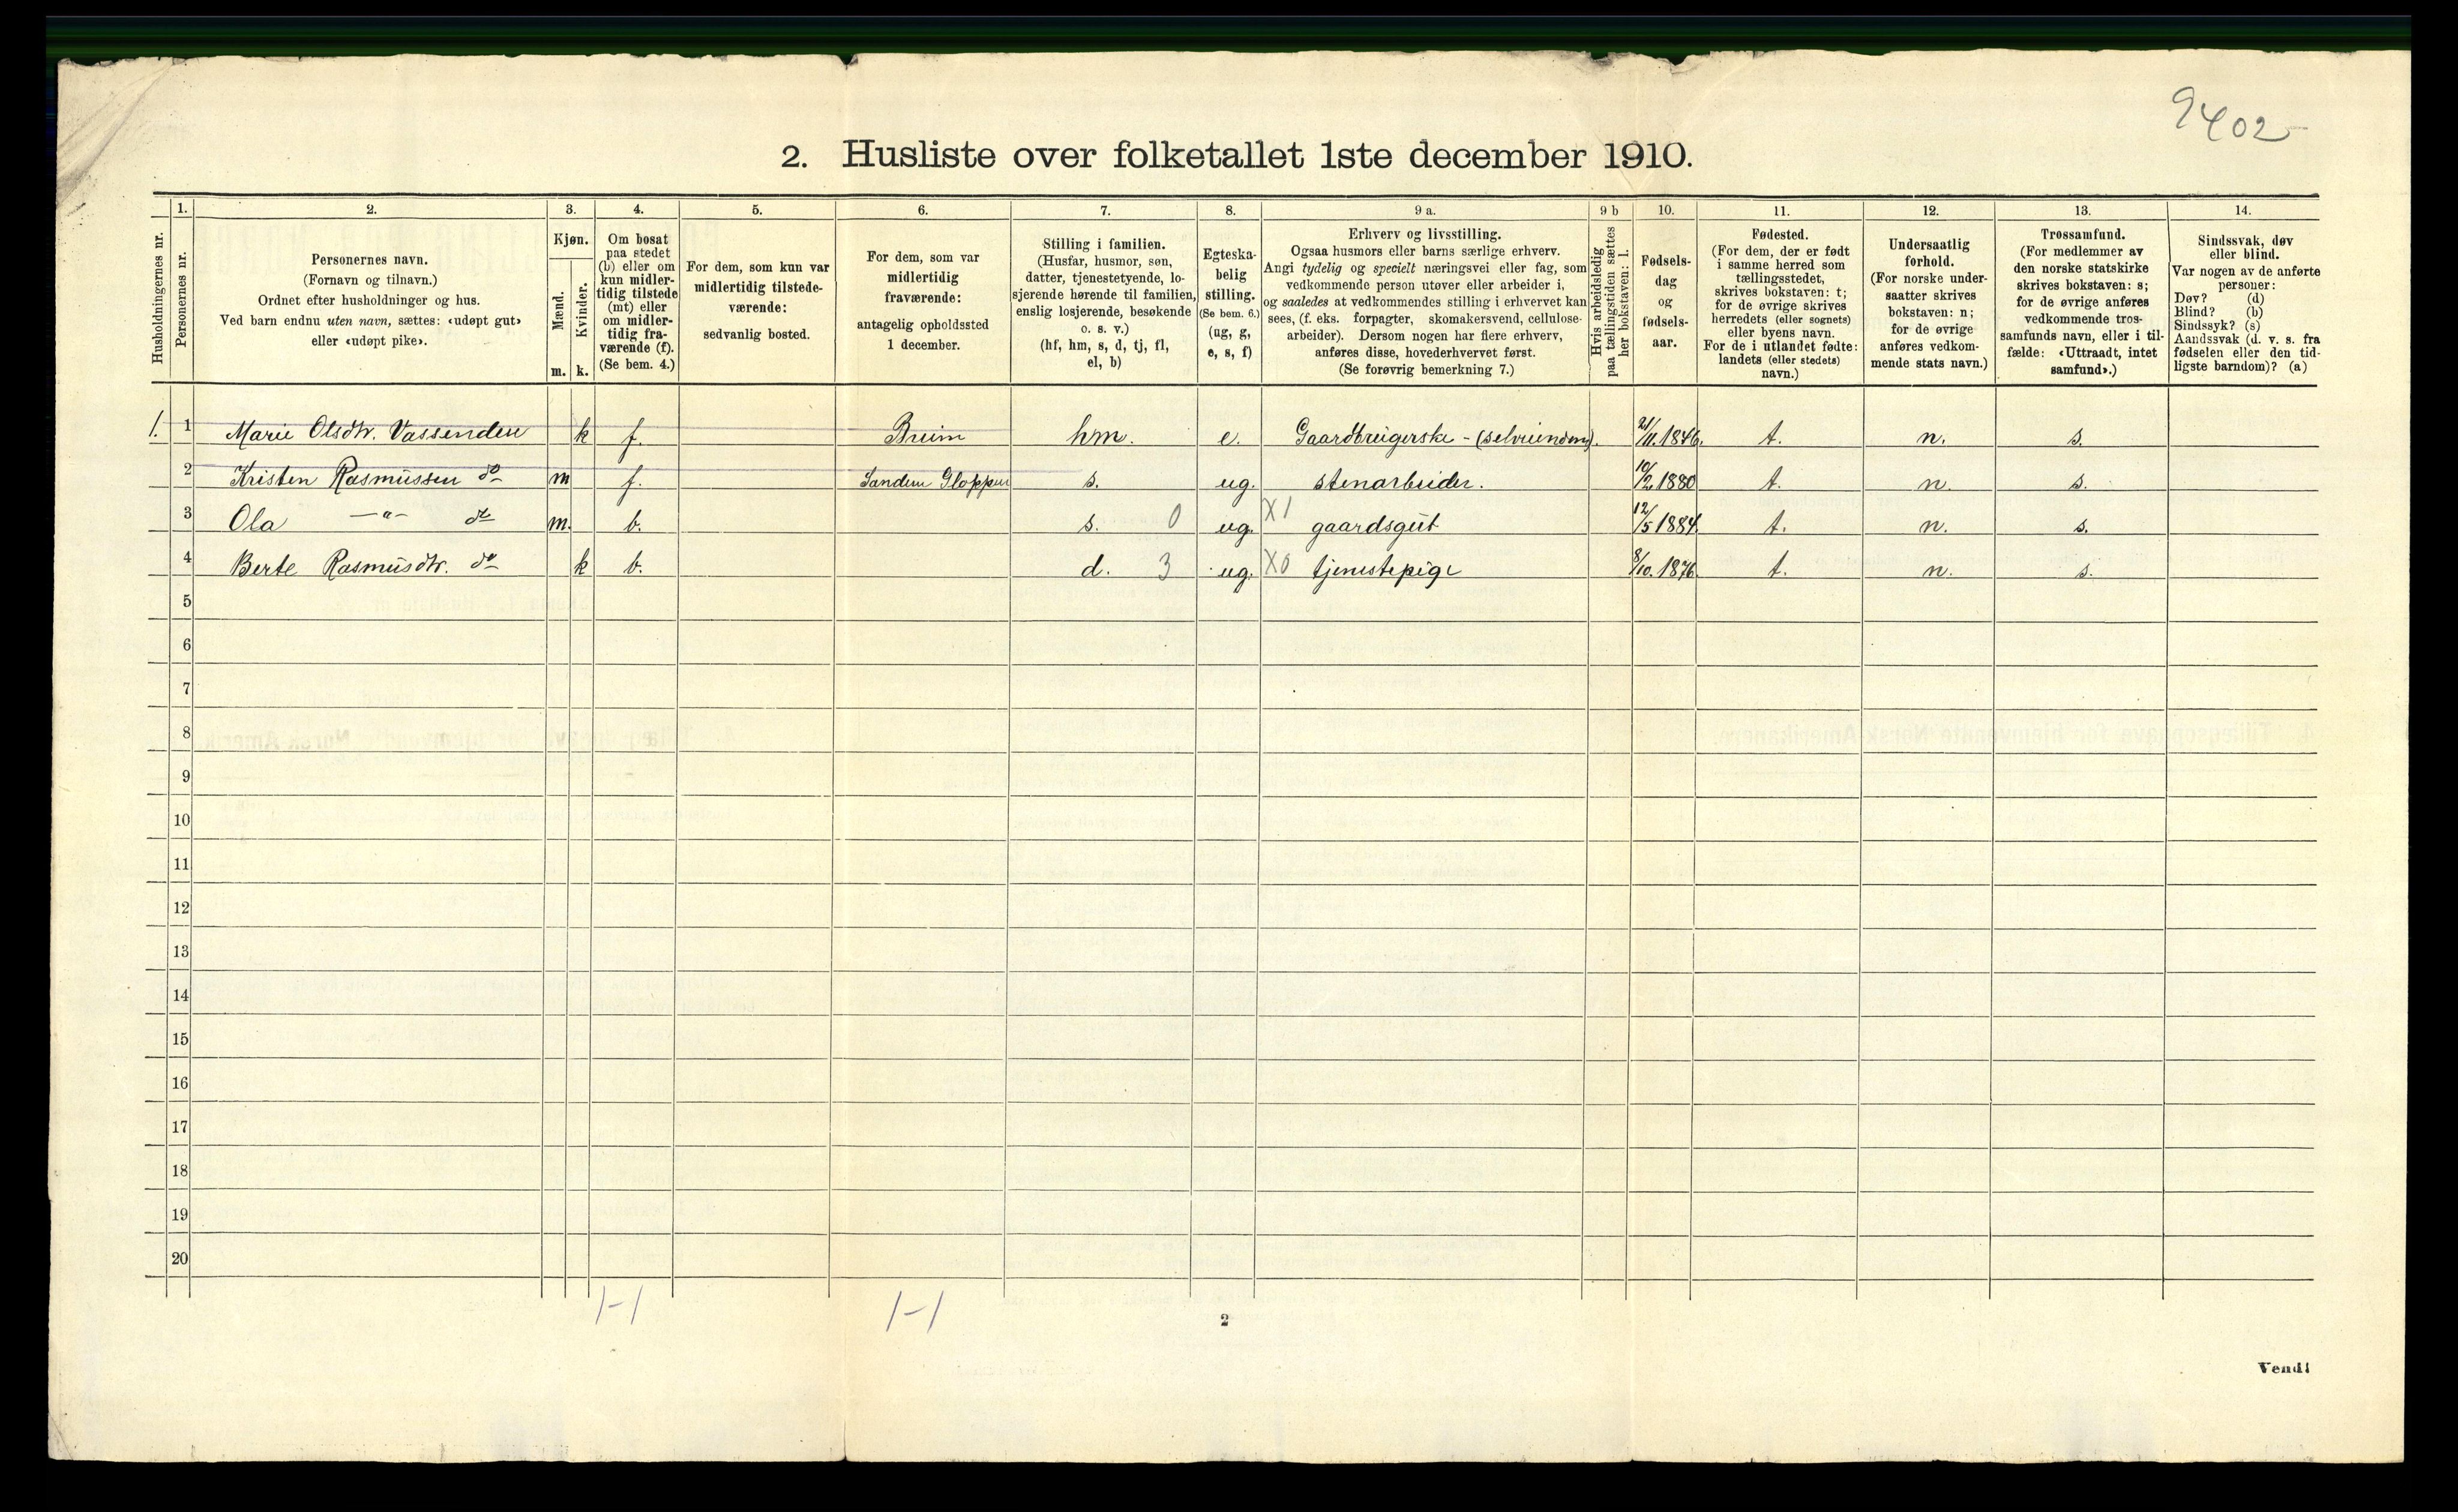 9402
2. Husliste over folketallet 1ste december 1910.
Husholdningernes nr.
1.
Personernes nr.
2.
Personernes navn.
(Fornavn og tilnavn.)
Ordnet efter husholdninger og hus.
Ved barn endnu uten navn, sættes: «udøpt gut»
eller «udøpt pike».
3.
Kjøn.
Mænd.
Kvinder.
m. k.
4.
Om bosat
paa stedet
(b) eller om
kun midler-
tidig tilstede
(mt) eller
om midler-
tidig fra-
værende (f).
(Se bem. 4.)
5.
For dem, som kun var
midlertidig tilstede-
værende:
sedvanlig bosted.
6.
For dem, som var
midlertidig
fraværende:
antagelig opholdssted
1 december.
7.
Stilling i familien.
(Husfar, husmor, søn,
datter, tjenestetyende, lo-
sjerende hørende til familien,
enslig losjerende, besøkende
o. s. v.)
(hf, hm, s, d, tj, fl,
el, b)
8.
Egteska-
belig
stilling.
(Se bem. 6.)
(ug, g,
e, s, f)
9 a.
Erhverv og livsstilling.
Ogsaa husmors eller barns særlige erhverv.
Angi tydelig og specielt næringsvei eller fag, som
vedkommende person utøver eller arbeider i,
og saaledes at vedkommendes stilling i erhvervet kan
sees, (f. eks. forpagter, skomakersvend, cellulose-
arbeider). Dersom nogen har flere erhverv,
anføres disse, hovederhvervet først.
(Se forøvrig bemerkning 7.)
9 b
Hvis arbeidsledig
paa tællingstiden sættes
her bokstaven: l.
10.
Fødsels-
dag
og
fødsels-
aar.
11.
Fødested.
(For dem, der er født
i samme herred som
tællingsstedet,
skrives bokstaven: t;
for de øvrige skrives
herredets (eller sognets)
eller byens navn.
For de i utlandet fødte:
landets (eller stedets)
navn.)
12.
Undersaatlig
forhold.
(For norske under-
saatter skrives
bokstaven: n;
for de øvrige
anføres vedkom-
mende stats navn.)
13.
Trossamfund.
(For medlemmer av
den norske statskirke
skrives bokstaven: s;
for de øvrige anføres
vedkommende tros-
samfunds navn, eller i til-
fælde: «Uttraadt, intet
samfund».)
14.
Sindssvak, døv
eller blind.
Var nogen av de anførte
personer:
Døv? (d)
Blind? (b)
Sindssyk? (s)
Aandssvak (d. v. s. fra
fødselen eller den tid-
ligste barndom)? (a)
1. 1 Marie Olsdtr. Vassenden k f. Breim hm. e. Gaardbrugerske - (selveiendom). 21/11.1846. t. n. s.
2 Kristen Rasmussen do m f. Sandene Gloppen s. ug. stenarbeider. 10/2 1880 t. n. s.
3 Ola —"— do m. b. s. 0 ug. X1 gaardsgut 12/5 1884. t. n. s.
4 Berte Rasmusdtr. do k b. d. 3 ug. X0 tjenestepige 8/10. 1876. t. n. s.
5
6
7
8
9
10
11
12
13
14
15
16
17
18
19
20
1-1 1-1
2
Vend!